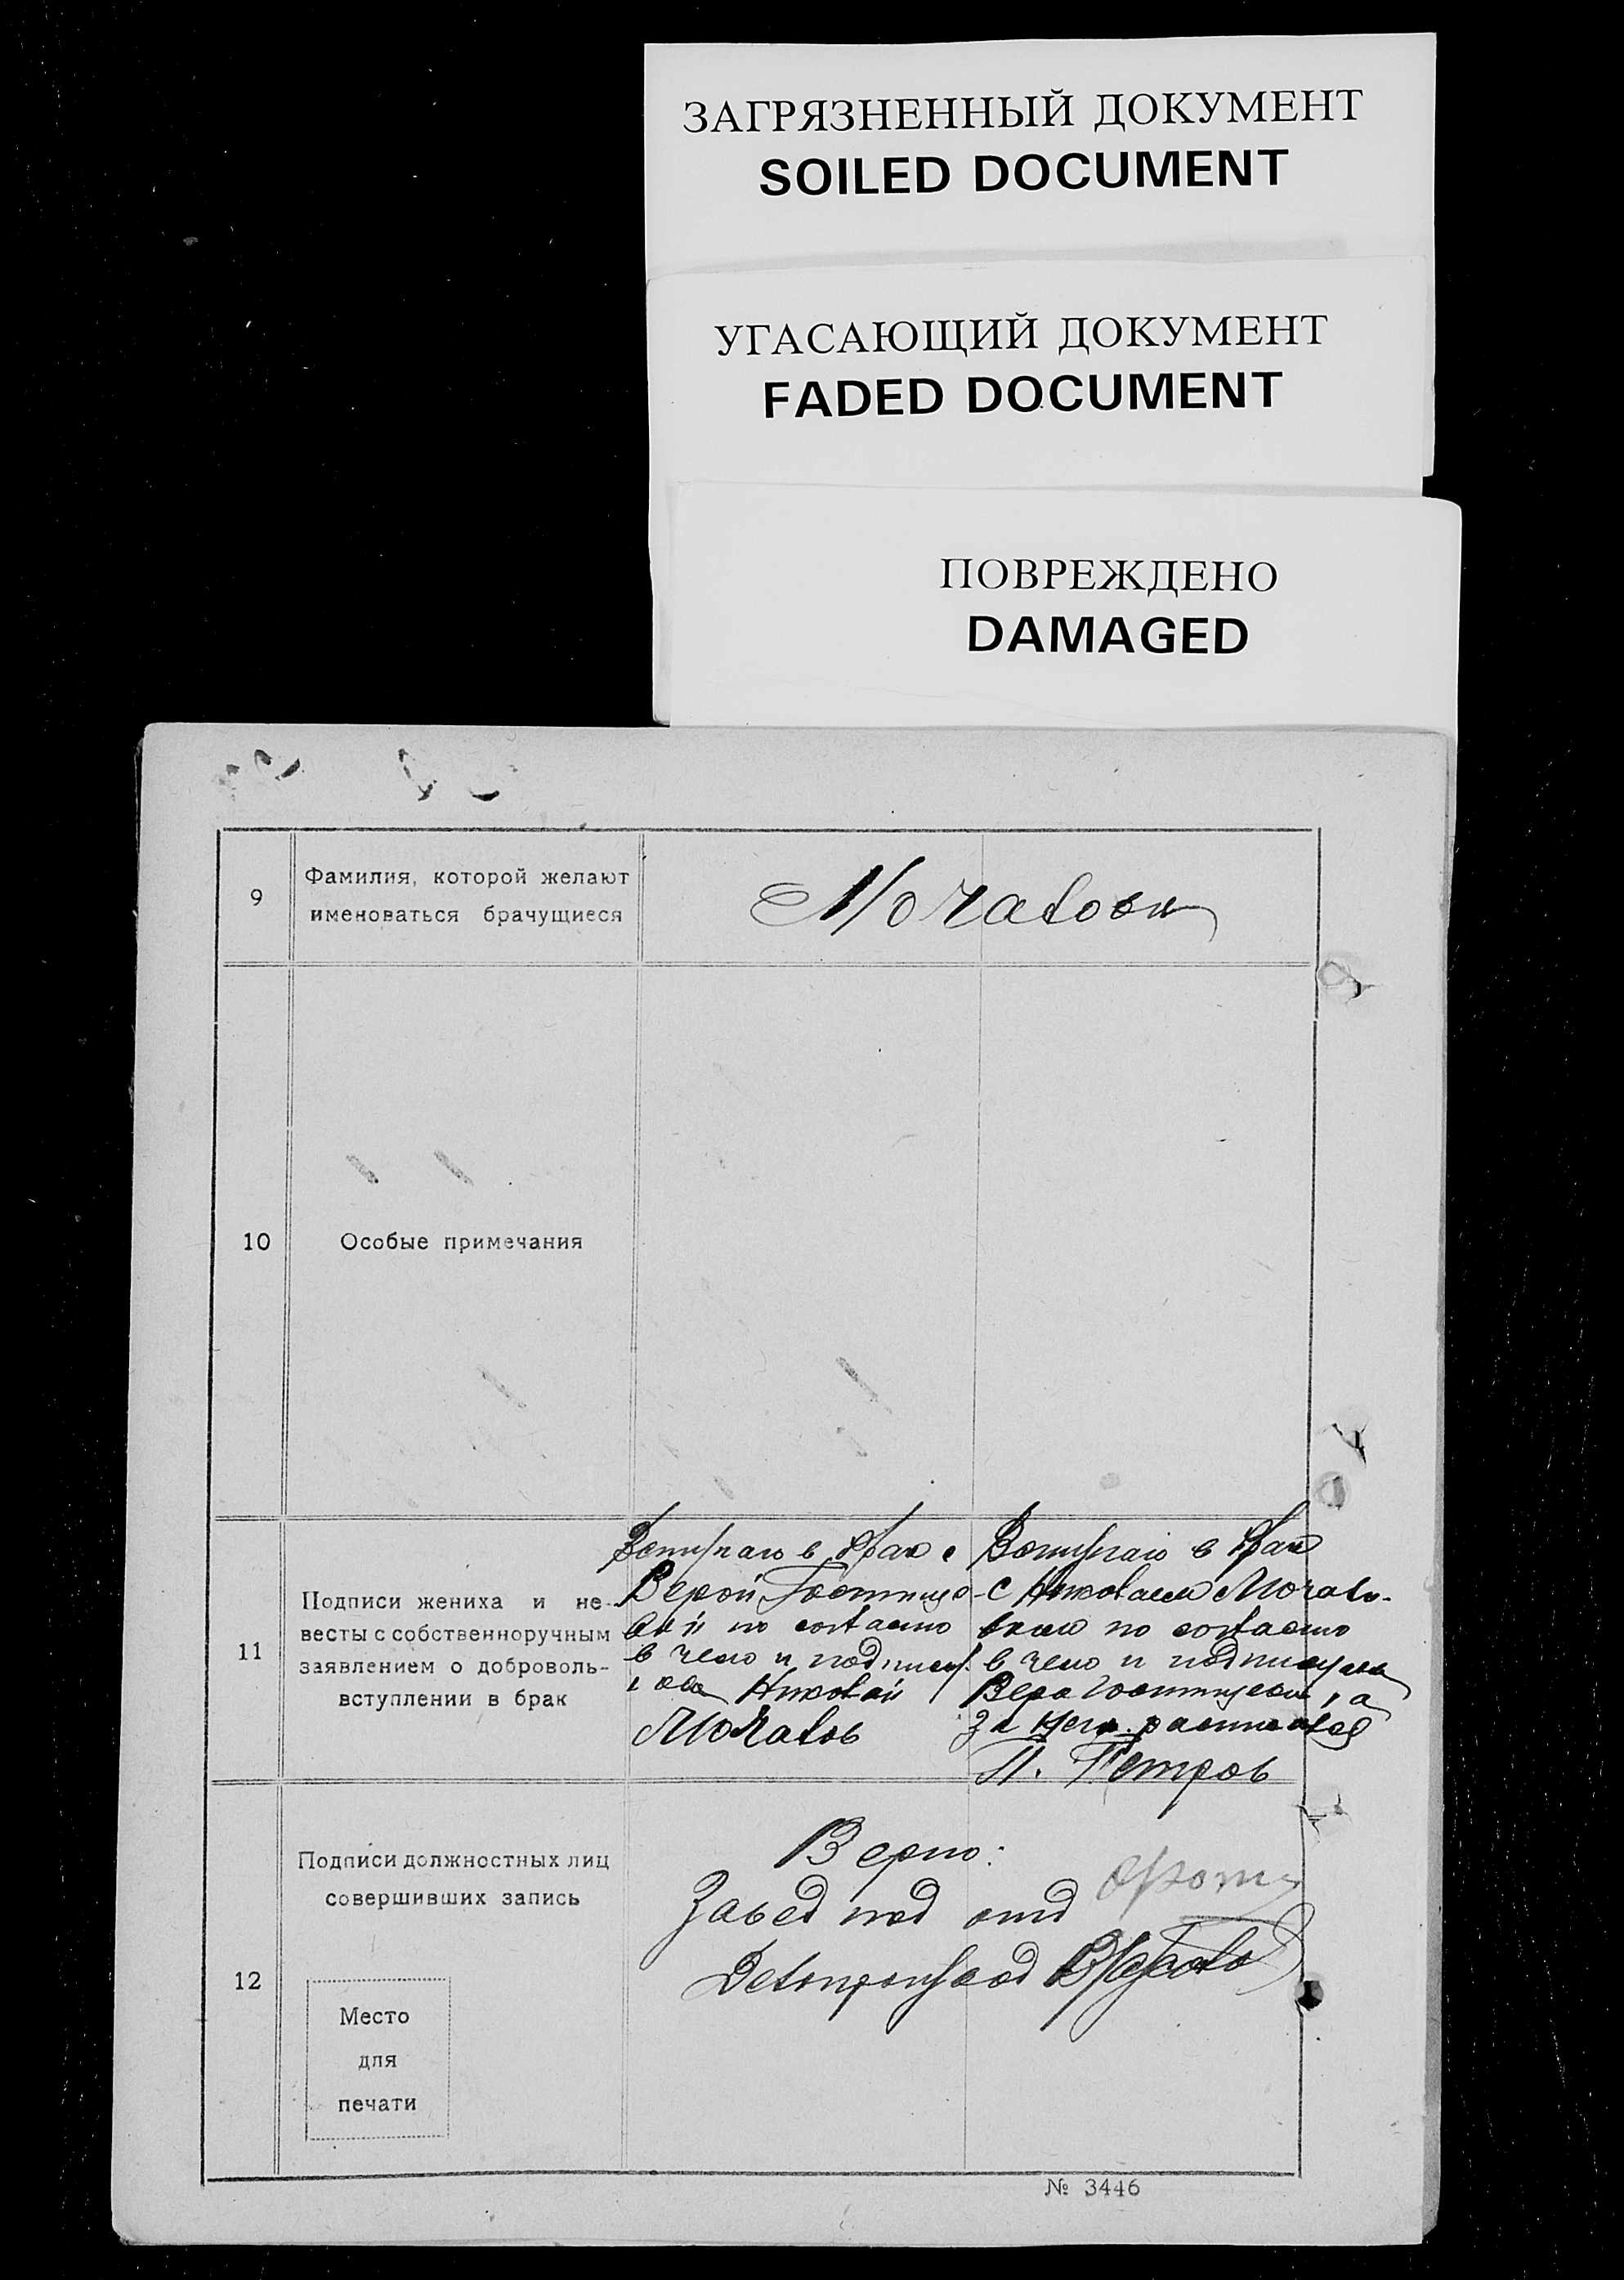 ЗАГРЯЗНЕННЫЙ ДОКУМЕНТ
SOILED DOCUMENT
УГАСАЮЩИЙ ДОКУМЕНТ
FADED DOCUMENT
ПОВРЕЖДЕНО
DAMAGED
9
Фамилия, которой желают
именоваться брачущиеся
10
Особые примечания
11
Подписи жениха и не-
весты с собственноручным
заявлением о доброволь-
вступлении в брак
Вступаю в брак с
Верой
по согласию
в чем и
Николай
Вступаю в брак
с Николаем
по согласию
в чем и подписуюсь
Вера а
за нея
П. Петров
12
Подписи должностных лиц
совершивших запись
Место
для
печати
Верно:
Завед под отд
№ 3446